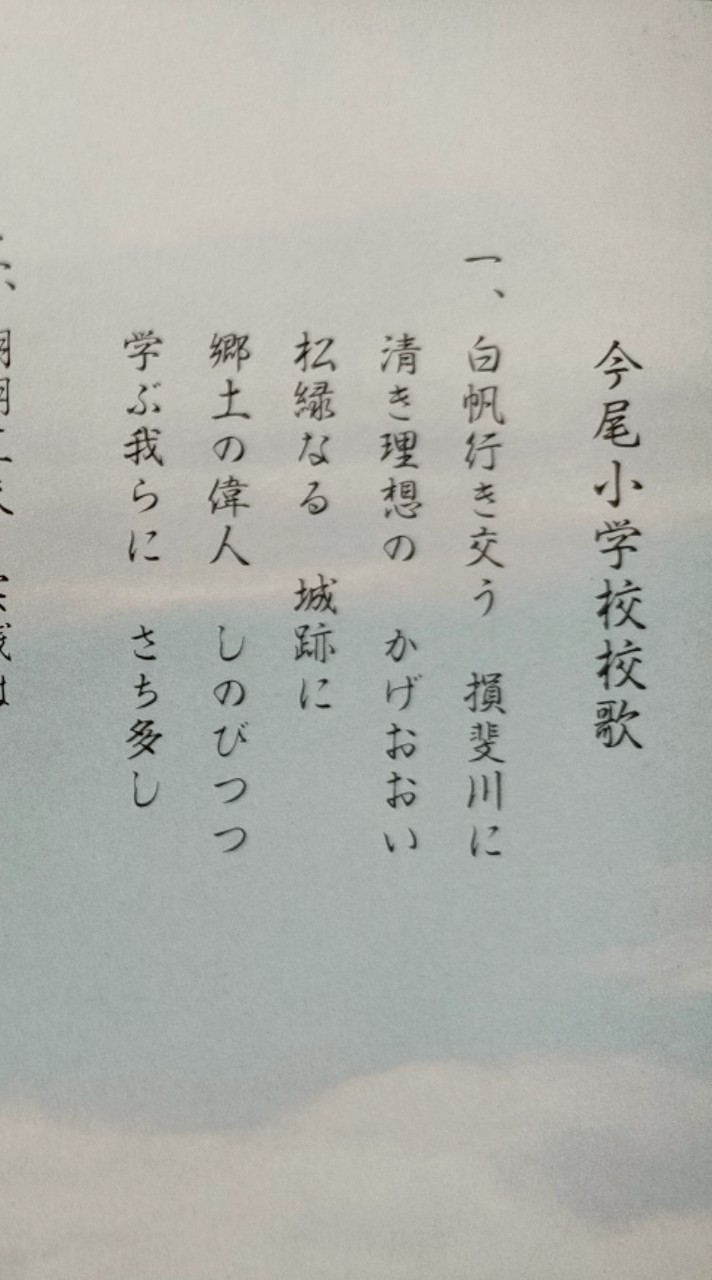 今尾小学校校歌
一、白帆行き交う 損斐川に
清き理想の かげおおい
松緑なる 城跡に
郷土の偉人 しのびつつ
学ぶ我らに さち多し